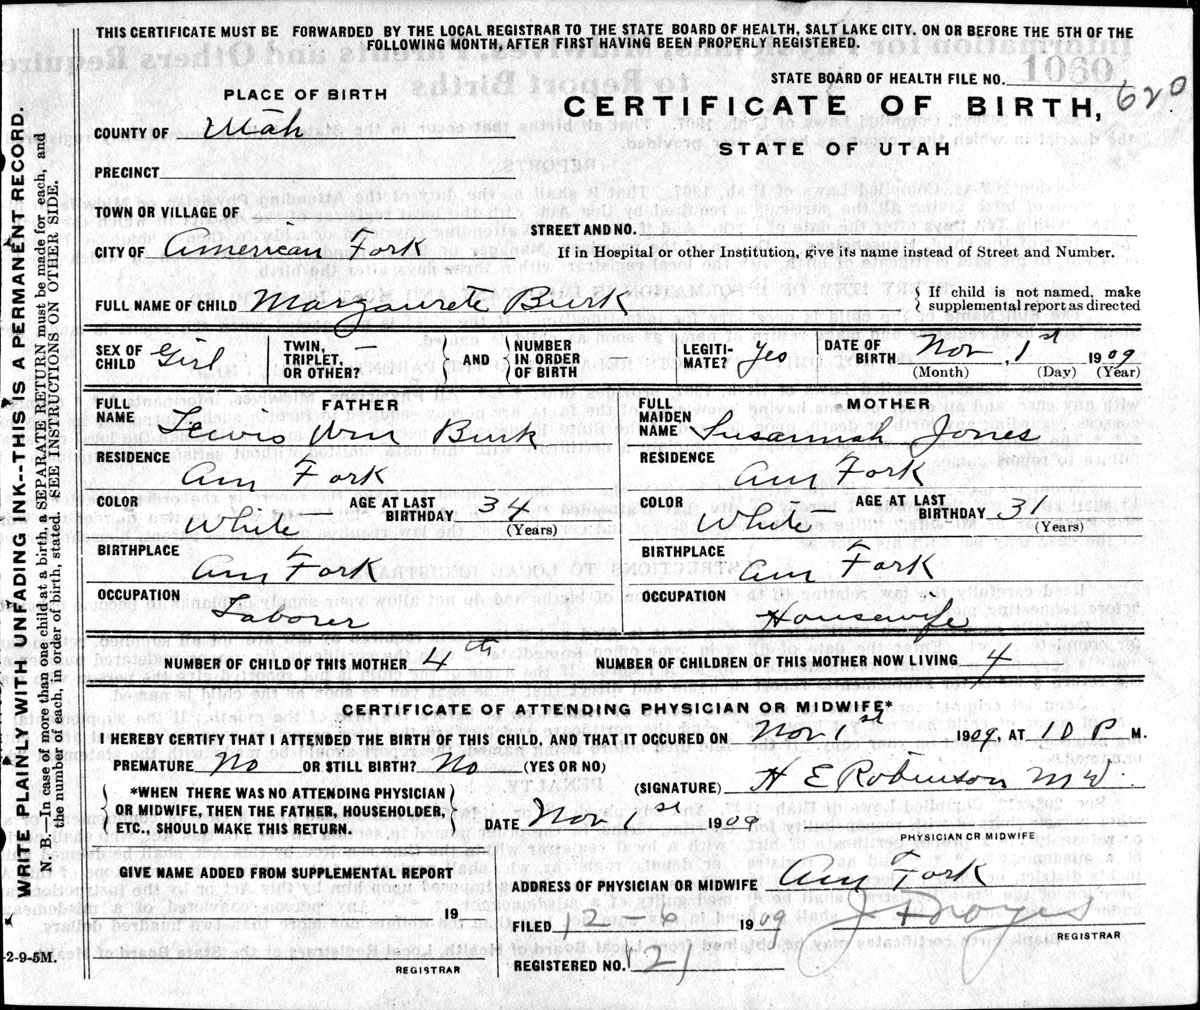 THIS CERTIFICATE MUST BE FORWARDED BY THE LOCAL REGISTRAR TO THE STATE BOARD OF HEALTH, SALT LAKE CITY, ON OR BEFORE THE 5TH OF THE
FOLLOWING MONTH, AFTER FIRST HAVING BEEN PROPERLY REGISTERED.
STATE BOARD OF HEALTH FILE NO. 1060
620
PLACE OF BIRTH
CERTIFICATE OF BIRTH,
STATE OF UTAH
COUNTY OF Utah
PRECINCT
TOWN OR VILLAGE OF
CITY OF American Fork
STREET AND NO.
If in Hospital or other Institution, give its name instead of Street and Number.
FULL NAME OF CHILD Margaurete Burk
{ If child is not named, make
supplemental report as directed
SEX OF
CHILD Girl
TWIN,
TRIPLET, —
OR OTHER?
} AND {
NUMBER
IN ORDER
OF BIRTH
LEGITI-
MATE? Yes
DATE OF
BIRTH Nov. 1st 1909
(Month) (Day) (Year)
FATHER
FULL
NAME Lewis Wm Burk
RESIDENCE
Am Fork
COLOR White
AGE AT LAST
BIRTHDAY 34
(Years)
BIRTHPLACE
Am Fork
OCCUPATION
Laborer
MOTHER
FULL
MAIDEN
NAME Susannah Jones
RESIDENCE
Am Fork
COLOR White
AGE AT LAST
BIRTHDAY 31
(Years)
BIRTHPLACE
Am Fork
OCCUPATION
Housewife
NUMBER OF CHILD OF THIS MOTHER 4th
NUMBER OF CHILDREN OF THIS MOTHER NOW LIVING 4
CERTIFICATE OF ATTENDING PHYSICIAN OR MIDWIFE*
I HEREBY CERTIFY THAT I ATTENDED THE BIRTH OF THIS CHILD, AND THAT IT OCCURED ON Nov 1st 1909, AT 10 P M.
PREMATURE No OR STILL BIRTH? No (YES OR NO)
(SIGNATURE) H E Robinson M W.
{ *WHEN THERE WAS NO ATTENDING PHYSICIAN
OR MIDWIFE, THEN THE FATHER, HOUSEHOLDER,
ETC., SHOULD MAKE THIS RETURN. }
DATE Nov 1st 1909
PHYSICIAN OR MIDWIFE
GIVE NAME ADDED FROM SUPPLEMENTAL REPORT
19
REGISTRAR
ADDRESS OF PHYSICIAN OR MIDWIFE Am Fork
FILED 12-6 1909
REGISTRAR
REGISTERED NO. 121
WRITE PLAINLY WITH UNFADING INK--THIS IS A PERMANENT RECORD.
N. B.—In case of more than one child at a birth, a SEPARATE RETURN must be made for each, and
the number of each, in order of birth, stated. SEE INSTRUCTIONS ON OTHER SIDE.
-2-9-5M.